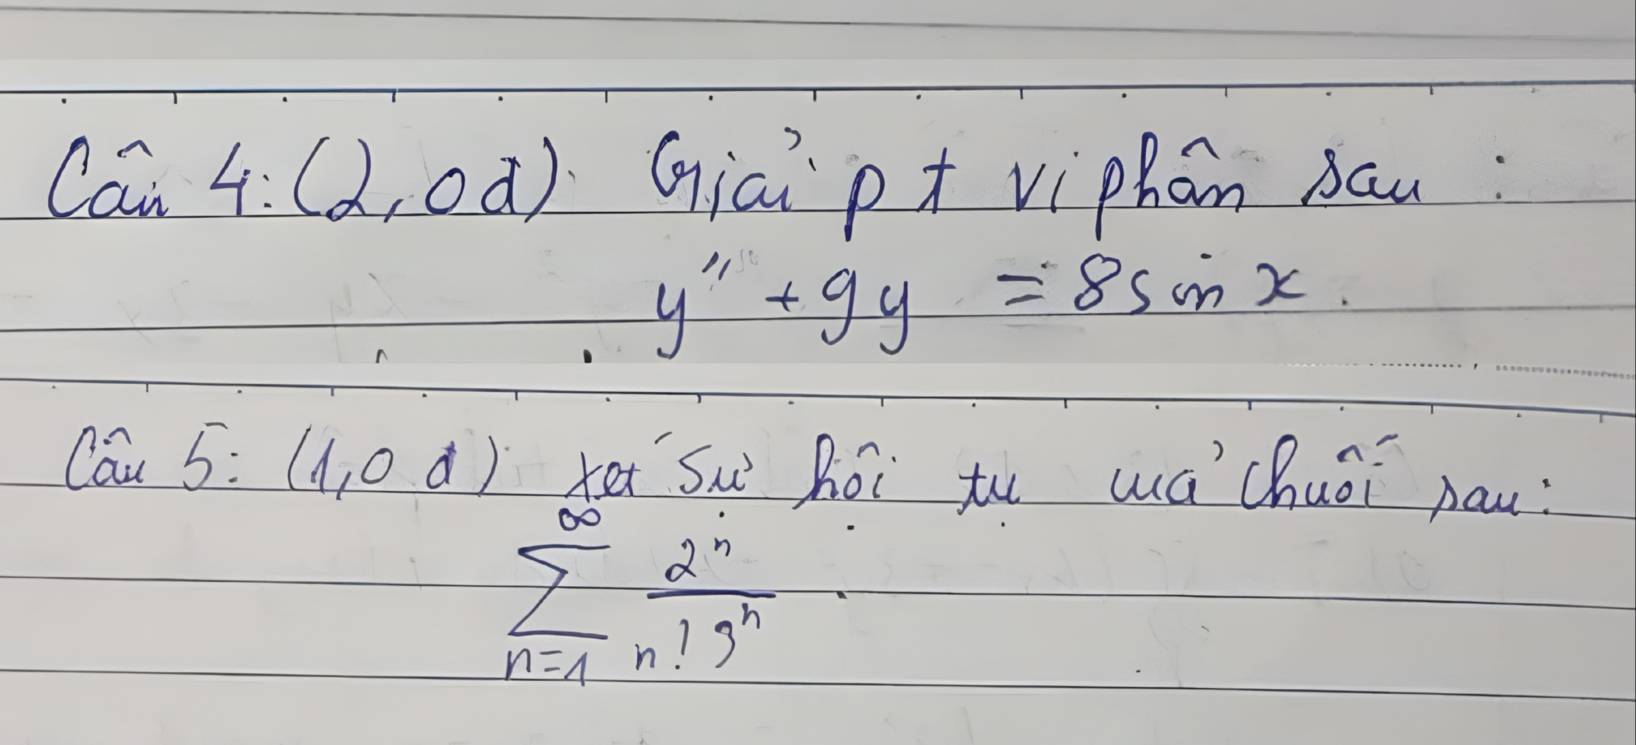 Câu 4: (2,0đ) Giải pt vi phân sau:
y'' + 9y = 8sin x.
Câu 5: (1,0 đ) xét sự hội tụ của chuỗi sau:
∑_{n=1}^{∞} \frac{2^n}{n! 9^n}